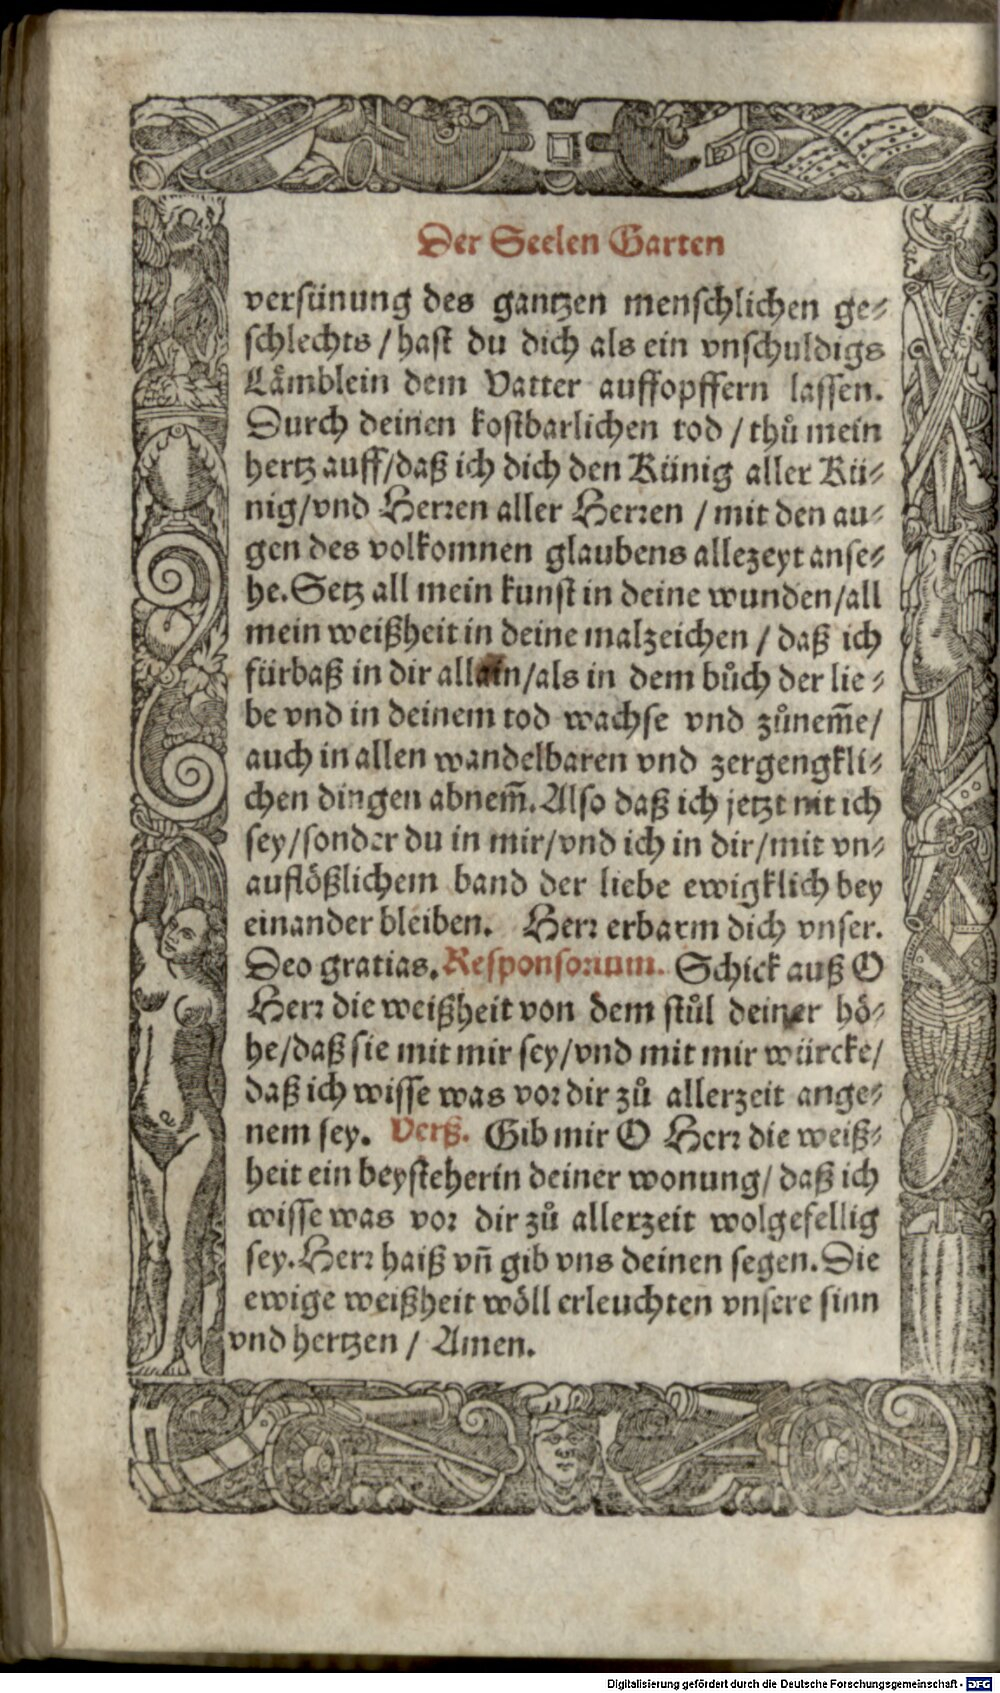 Der Seelen Garten
versünung des gantzen menschlichen ge-
schlechts / hast du dich als ein vnschuldigs
Lämblein dem Vatter auffopffern lassen.
Durch deinen kostbarlichen tod / thů mein
hertz auff/daß ich dich den Künig aller Kü-
nig/vnd Herren aller Herren / mit den au-
gen des volkomnen glaubens allezeyt anse-
he. Setz all mein kunst in deine wunden/all
mein weißheit in deine malzeichen / daß ich
fürbaß in dir allain/als in dem bůch der lie-
be vnd in deinem tod wachse vnd zůnem̅e/
auch in allen wandelbaren vnd zergengkli-
chen dingen abnem̅. Also daß ich jetzt nit ich
sey/sonder du in mir/vnd ich in dir/mit vn-
auflößlichem band der liebe ewigklich bey
einander bleiben. Herr erbarm dich vnser.
Deo gratias. Responsorium. Schick auß O
Herr die weißheit von dem stůl deiner hö-
he/daß sie mit mir sey/vnd mit mir würcke/
daß ich wisse was vor dir zů allerzeit ange-
nem sey. Verß. Gib mir O Herr die weiß-
heit ein beysteherin deiner wonung/ daß ich
wisse was vor dir zů allerzeit wolgefellig
sey. Herr haiß vn̅ gib vns deinen segen. Die
ewige weißheit wöll erleuchten vnsere sinn
vnd hertzen / Amen.
Digitalisierung gefördert durch die Deutsche Forschungsgemeinschaft - DFG